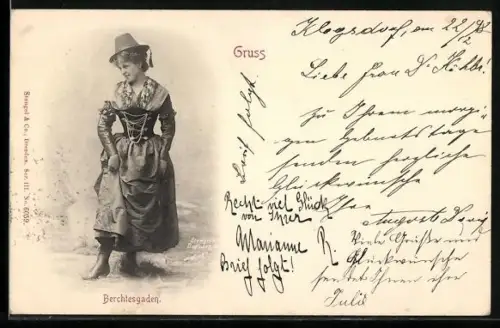 Gruss
Klogsdorf, am 22/2
Liebe Frau Dr
zu Ihrem morgi-
gen Geburtstage
senden herzliche
Glückwünsche
Ihre
Auguste
Viele Grüße und
Glückwünsche
sendet Ihnen ihre
Julie
Brief folgt.
Recht viel Glück
von Ihrer
Marianne R
Brief folgt!
Stengel & Co., Dresden. Ser. III. No. 6059.
Berchtesgaden.